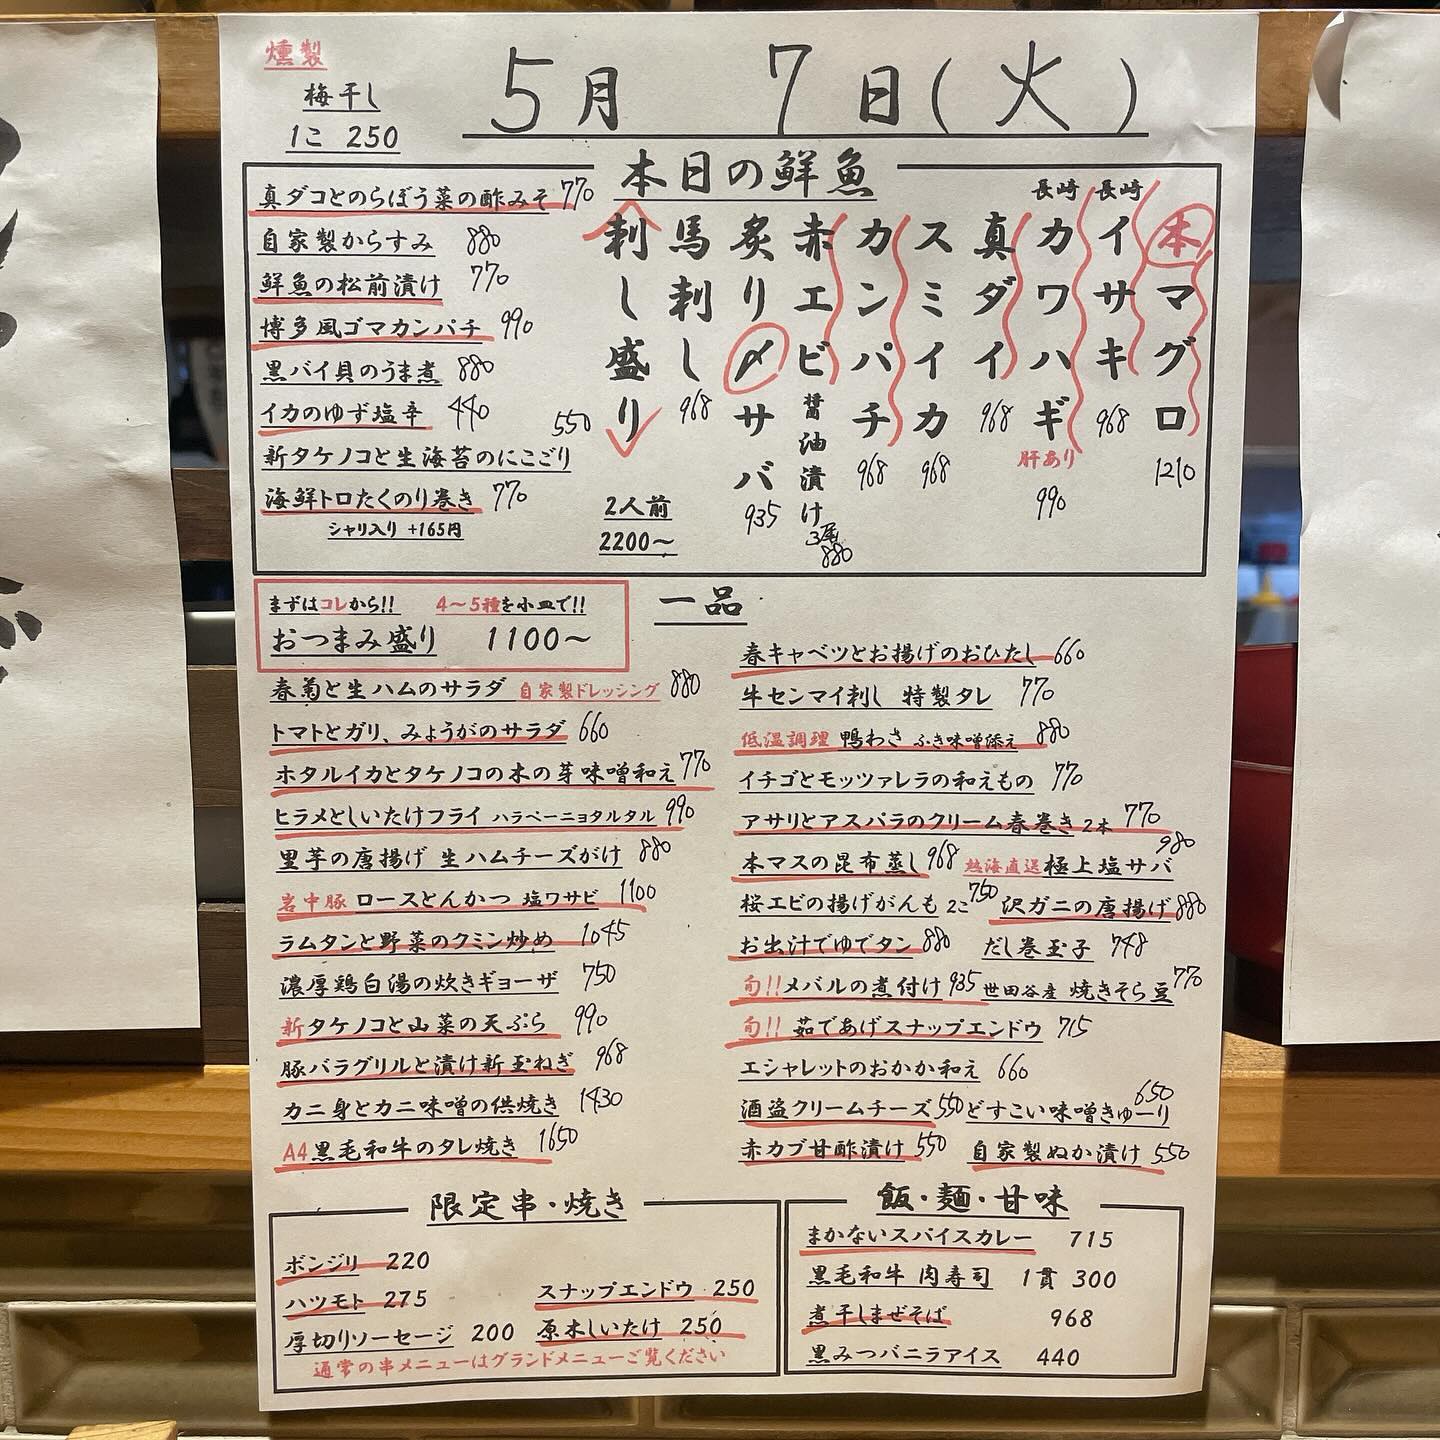 燻製
梅干し
1こ 250
5月 7日(火)
本日の鮮魚
本マグロ 1210
長崎 イサキ 968
長崎 カワハギ 肝あり 990
真ダイ 968
スミイカ 968
カンパチ 968
赤エビ醤油漬け 3尾 880
炙り〆サバ 935
馬刺し 968
刺し盛り 2人前 2200〜
真ダコとのらぼう菜の酢みそ 770
自家製からすみ 880
鮮魚の松前漬け 770
博多風ゴマカンパチ 990
黒バイ貝のうま煮 880
イカのゆず塩辛 440
新タケノコと生海苔のにこごり 550
海鮮トロたくのり巻き 770
シャリ入り +165円
まずはコレから!! 4〜5種を小皿で!!
おつまみ盛り 1100〜
一品
春菊と生ハムのサラダ 自家製ドレッシング 880
トマトとガリ、みょうがのサラダ 660
ホタルイカとタケノコの木の芽味噌和え 770
ヒラメとしいたけフライ ハラペーニョタルタル 990
里芋の唐揚げ 生ハムチーズがけ 880
岩中豚 ロースとんかつ 塩ワサビ 1100
ラムタンと野菜のクミン炒め 1045
濃厚鶏白湯の炊きギョーザ 750
新タケノコと山菜の天ぷら 990
豚バラグリルと漬け新玉ねぎ 968
カニ身とカニ味噌の供焼き 1430
A4黒毛和牛のタレ焼き 1650
春キャベツとお揚げのおひたし 660
牛センマイ刺し 特製タレ 770
低温調理 鴨わさ ふき味噌添え 880
イチゴとモッツァレラの和えもの 770
アサリとアスパラのクリーム春巻き 2本 770
本マスの昆布蒸し 968 熱海直送 極上塩サバ 980
桜エビの揚げがんも 2こ 750 沢ガニの唐揚げ 880
お出汁でゆでタン 880 だし巻玉子 748
旬!!メバルの煮付け 935 世田谷産 焼きそら豆 770
旬!! 茹であげスナップエンドウ 715
エシャレットのおかか和え 660
酒盗クリームチーズ 550 どすこい味噌きゅーり 650
赤カブ甘酢漬け 550 自家製ぬか漬け 550
限定串・焼き
ボンジリ 220
ハツモト 275
厚切りソーセージ 200
スナップエンドウ 250
原木しいたけ 250
通常の串メニューはグランドメニューご覧ください
飯・麺・甘味
まかないスパイスカレー 715
黒毛和牛 肉寿司 1貫 300
煮干しまぜそば 968
黒みつバニラアイス 440